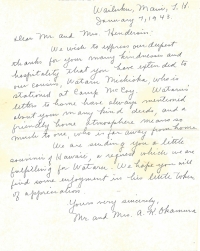 Wailuku, Maui, T. H.
January 7, 1943.
Dear Mr. and Mrs. Henderson:
We wish to express our deepest
thanks for your many kindnesses and
hospitality that you have extended to
our cousin, Wataru Mishioka, who is
stationed at Camp McCoy. Wataru's
letter to home have always mentioned
about your many kind deeds and a
friendly home atmosphere means so
much to one who is far away from home.
We are sending you a little
souvenir of Hawaii, a request which we are
fulfilling for Wataru. We hope you will
find some enjoyment in his little token
of appreciation.
Yours very sincerely,
Mr. and Mrs. A. H. Okamura